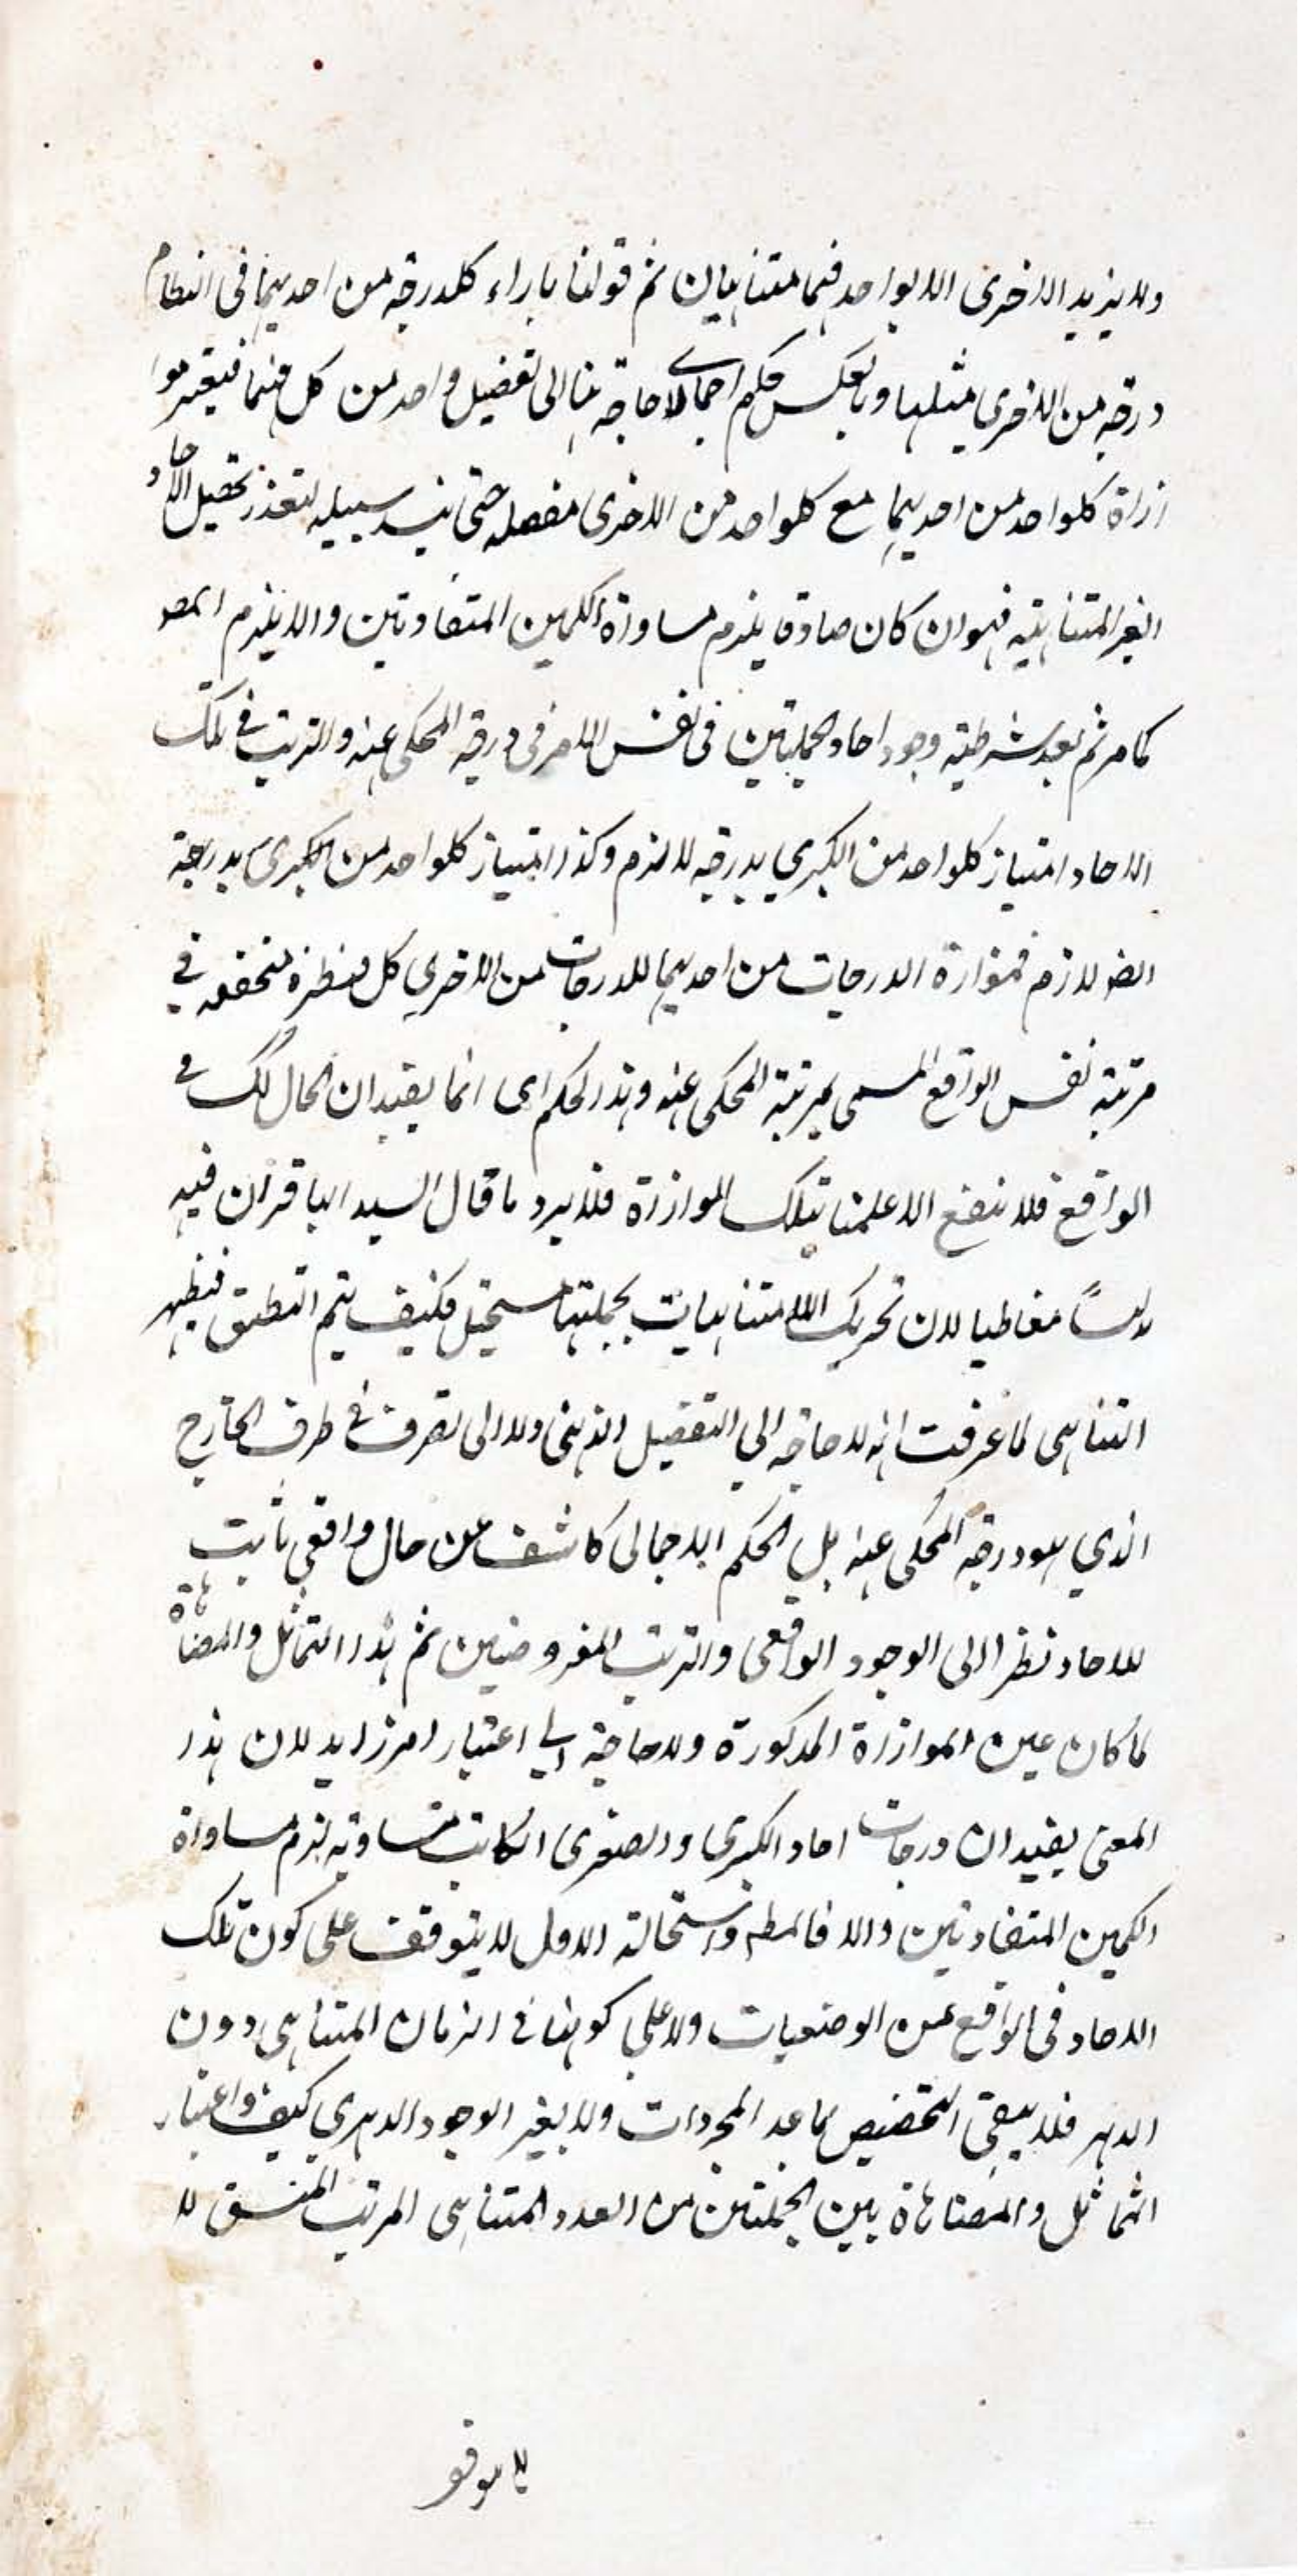 ولا يزيد الاخرى الا بواحد فهما متناهيان ثم قولنا بازاء كلدرجة من احديهما فى النظام
درجة من الاخرى مثلها وبالعكس حكم اجمالى لا حاجة هنا الى تفصيل واحد من كل منهما فيعتبر موا
زاة كلواحد من احديهما مع كلواحد من الاخرى مفصله حتى ينسد سبيله لتعذر تحصيل الآحاد
الغير المتناهية فهو ان كان صادقا يلزم مساواة الكمين المتفاوتين والا يلزم المط
كما مر ثم بعد شرطية وجود احاد الجملتين فى نفس الامر فى درجة المحكى عنه والترتب فى تلك
الاحاد امتياز كلواحد من الكبرى بدرجة لازم وكذا امتياز كلواحد من الصغرى بدرجة
ايضا لازم فموازاة الدرجات من احديهما للدرجات من الاخرى كل بنظيره متحققه فى
مرتبة نفس الواقع المسمى بمرتبة المحكى عنه وهذا الحكم اى انما يفيد ان الحال كك فى
الواقع فلا ينفع الا علمنا بتلك الموازاة فلا يرد ما قال السيد الباقر ان فيه
تدليسًا مغاطيا لان تحريك اللامتناهيات بجملتها مستحيل فكيف يتم التطبيق فيظهر
التناهى لما عرفت انه لا حاجة الى التفصيل الذهنى ولا الى تصرف فى طرف الخارج
الذي هو درجة المحكى عنه بل الحكم الاجمالى كاشف عن حال واقعى ثابت
للاحاد نظرا الى الوجود الواقعى والترتب المفروضين ثم هذا التماثل والمضاهاة
لما كان عين الموازاة المذكورة ولا حاجة الى اعتبار امر زايد لان هذا
المعنى يفيد ان درجات احاد الكبرى والصغرى ان كانت متساوية لزم مساواة
الكمين المتفاوتين والا فالمط واستحالة الاول لا يتوقف على كون تلك
الاحاد فى الواقع من الوضعيات ولا على كونها فى الزمان المتناهى دون
الدهر فلا يبقى التخصيص بما عدا المجردات ولا بغير الوجود الدهري كيف واعتبار
التماثل والمضاهاة بين الجملتين من العدد المتناهى المرتب المنسق لا
لا يتوقف